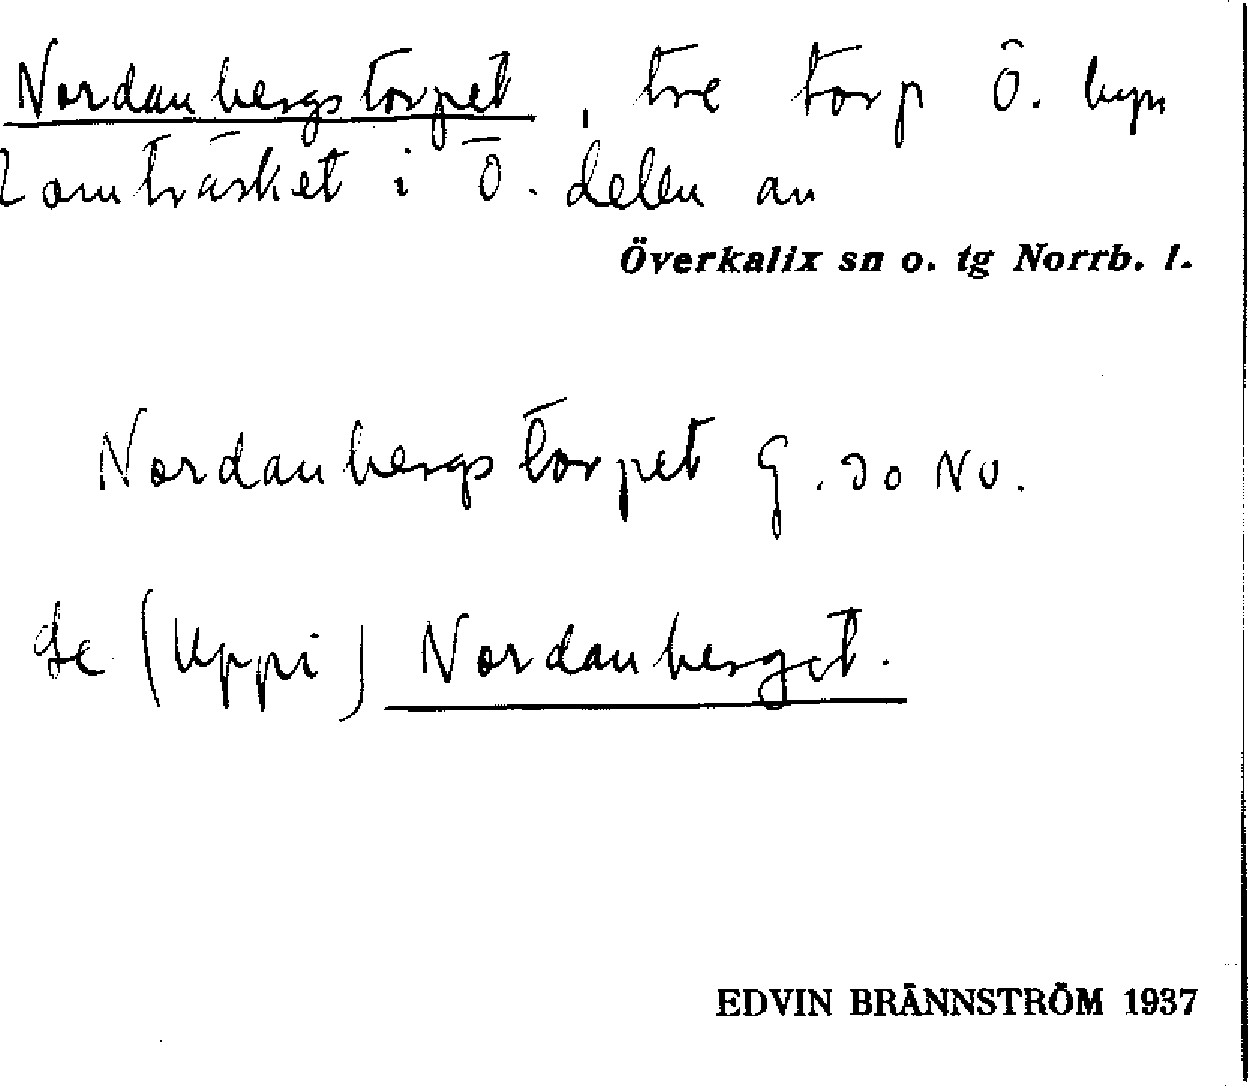 Nordanbergstorpet, tre torp Ö. byn
Lomträsket i Ö. delen av
Överkalix sn o. tg Norrb. l.
Nordanbergstorpet G. 30 NV.
Se (Uppi) Nordanberget.
EDVIN BRÄNNSTRÖM 1937